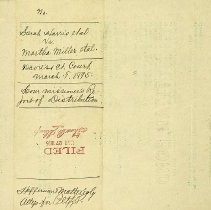 No.
Sarah Harris et al
vs.
Martha Miller et al.
Daviess Ct. Court
March 8, 1895.
Commissioners Re-
port of Distribution
FILED
Jefferson Mattingly
Atty. for Pltffs.